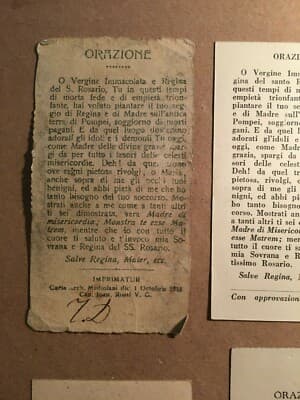 ORAZIONE
O Vergine Immacolata e Regina
del S. Rosario, Tu in questi tempi
di morta fede e di empietà trion-
fante, hai voluto piantare il tuo seg-
gio di Regina e di Madre sull'antica
terra di Pompei, soggiorno di morti
pagani. E da quel luogo dov'erano
adorati gli idoli e i demoni Tu oggi,
come Madre delle divine grazie
per tutto i tesori delle celesti
misericordie. Deh! da quel
ove regni pietosa, rivolgi, o Maria,
anche sopra di me gli occhi tuoi
benigni, ed abbi pietà di me che ho
tanto bisogno del tuo soccorso. Mo-
strati anche a me come a tanti altri
ti sei dimostrata, vera Madre di
misericordia, Monstra te esse Ma-
trem, mentre che io con tutto il
cuore ti saluto e t'invoco mia So-
vrana e Regina del SS. Rosario.
Salve Regina, Mater, ecc.
IMPRIMATUR
Curia Arch. Mediolani die 1 Octobris
Can. Joan. Rossi V. G.
ORAZI
O Vergine Im
del santo R
questi tempi
empietà trion
piantare il tuo
e di Madre su
Pompei, soggior
E da quel luog
adorati gl'idoli
oggi, come Mad
grazia, spargi da
sori delle celest
Deh! da quel
pietosa, rivolgi,
me gli occhi tuo
abbi pietà di me
sogno del tuo so
anche a me, com
a tanti altri ti sei
Madre di Misericor
esse Matrem; men
tutto il cuore ti s
mia Sovrana e R
tissimo Rosario.
Salve Regina,
Con approvazion
ORAZI